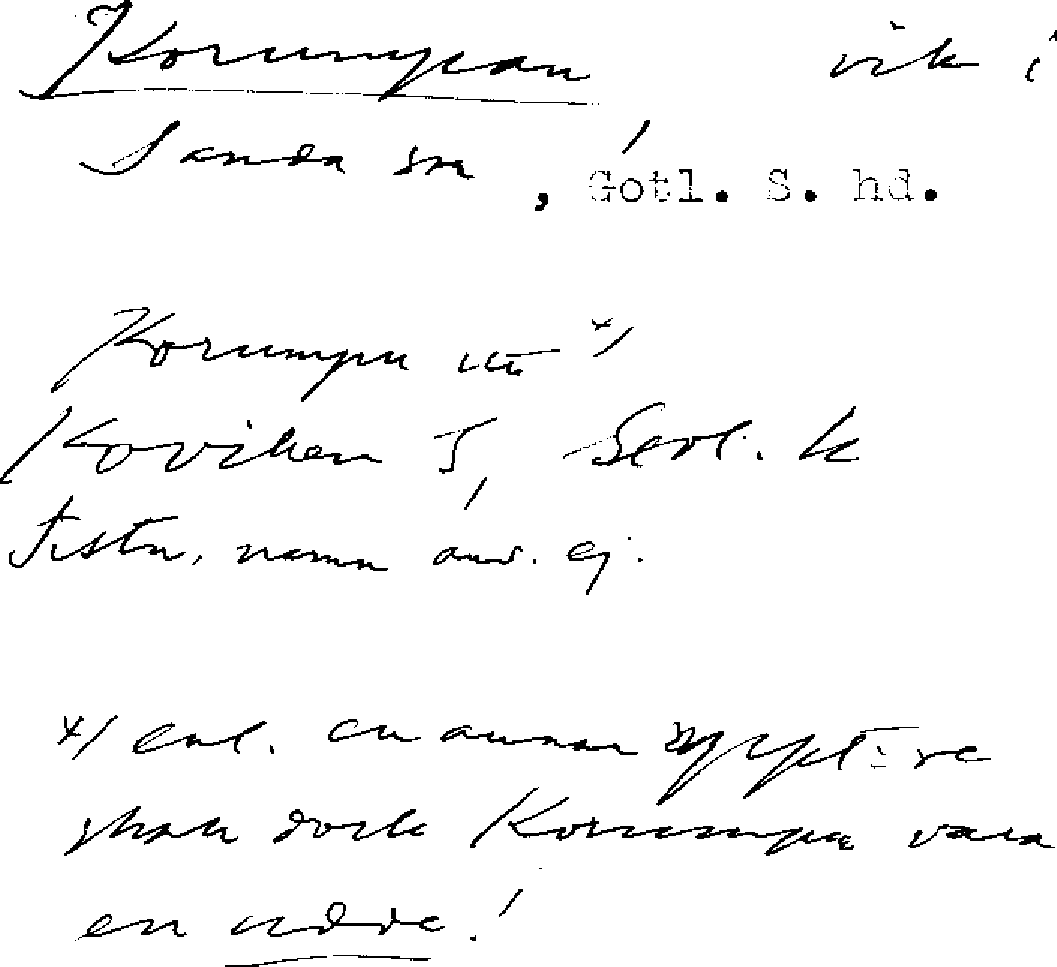 Korumpan vik i
Sanda sn, Gotl. S. hd.
Korumpu
Koviken S, Sexl. k
namn anv. ej.
x/ enl. en annan
skall dock Korumpu vara
en udde!